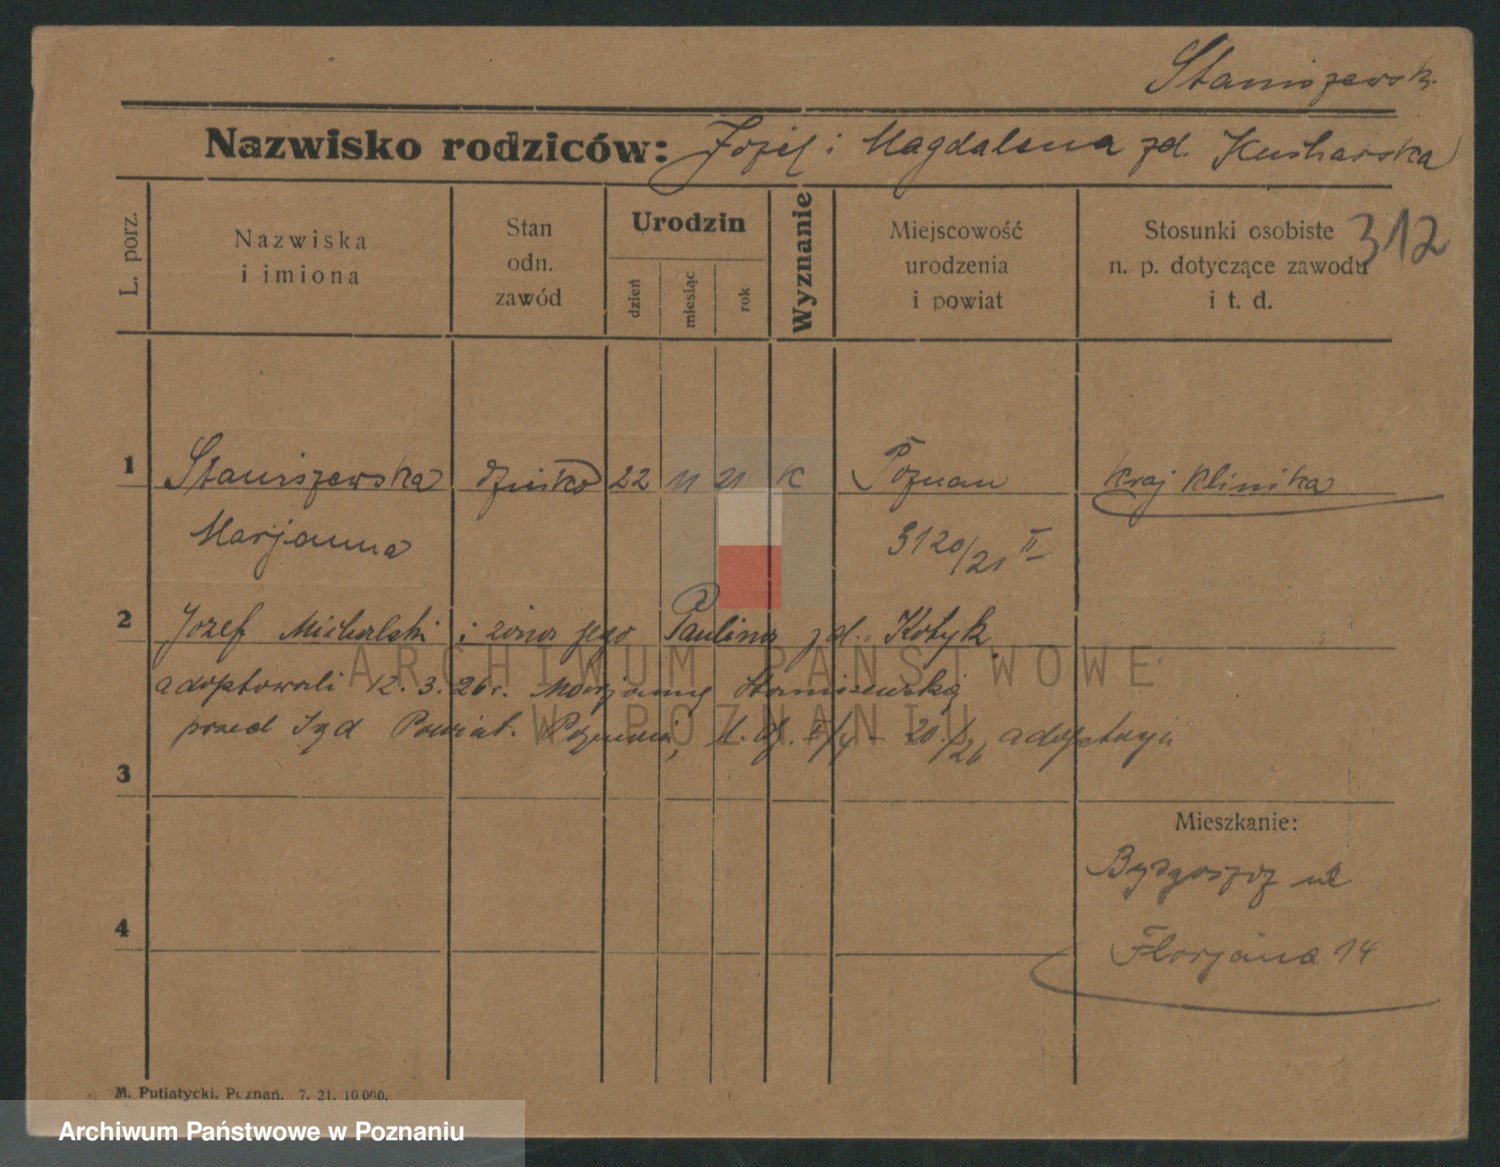 Staniszewsk.
Nazwisko rodziców: Józef i Magdalena zd. Kucharska
L. porz.
Nazwiska
i imiona
Stan
odn.
zawód
Urodzin
dzień
miesiąc
rok
Wyznanie
Miejscowość
urodzenia
i powiat
Stosunki osobiste
n. p. dotyczące zawodu
i t. d.
312
1 Staniszewska dziecko 22 11 21 K Poznań kraj klinika
Marjanna 3120/21 II
2 Józef Michalski i żona jego Paulina zd. Kotyk
adoptowali 12.3.26 r. Marjannę Staniszewską
przed Sąd Powiat. Poznań, 20/26 adoptacja
3
Mieszkanie:
Bydgoszcz ul
4 Florjana 14
M. Putiatycki, Poznań. 7. 21. 10 000.
ARCHIWUM PAŃSTWOWE
W POZNANIU
Archiwum Państwowe w Poznaniu